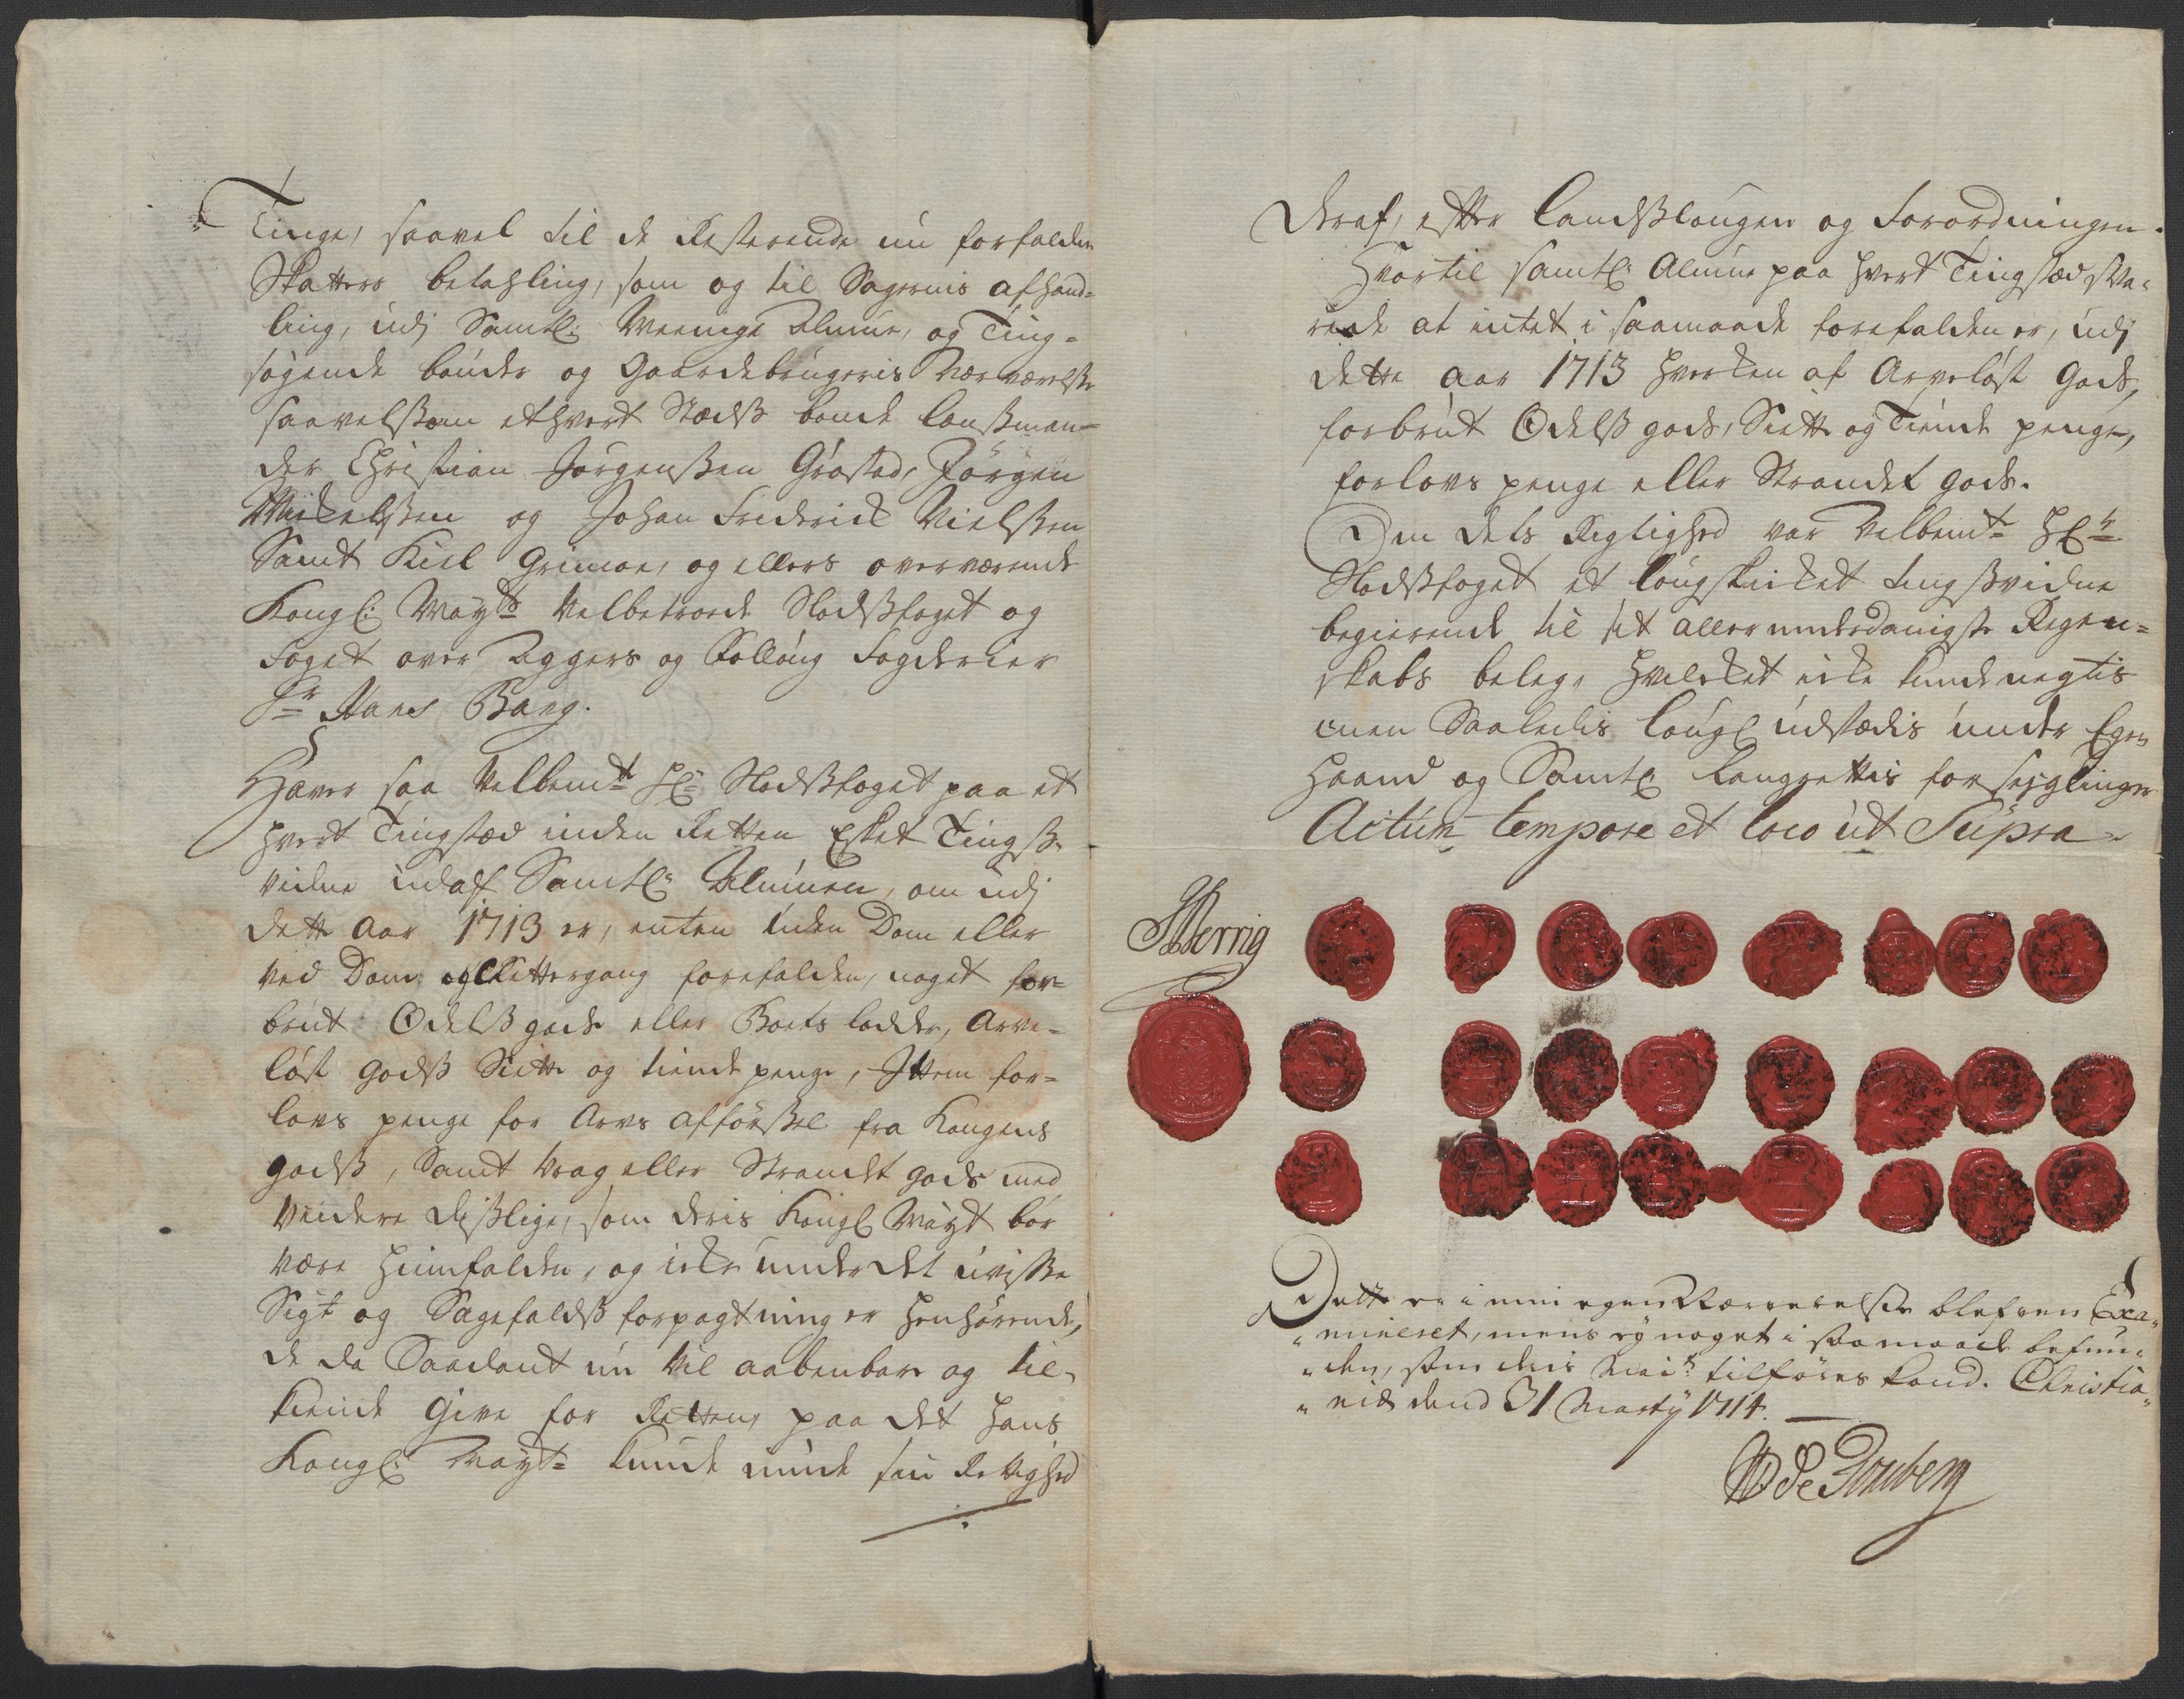 Tinge, saavel til de Resterende nu forfaldne
Skatters betahling, som og til Sagernis afhand-
ling, udj Samtl: Meenige Almue, og Ting-
søgende bønder og Gaardebrugeris Nærværelse
saavelssom ethvert Stædss bonde lenssmæn-
der Christian Jørgenssen Grøstad, Jørgen
Mickelssen og Johan Friderich Nielssen
Samt Kield Grimøe, og ellers overværende
Kongl: Mayts Velbetroede Slodssfoget og
Foget over Aggers og Folloug Fogderier
Sr Hans Bang.
Haver saa Velbemte Hr Slodssfoget paa et
hvert Tingstæd inden Retten Esket Tingss
vidne udaff Samtl: Almuen, om udj
dette Aar 1713 er, enten uden Dom eller
ved Dom og Rettergang forefalden, noget for-
brut Odelss gods eller Boets lodder, Arve-
løst godss Siette og tiende penge, Ittem for-
lovs penge for Arvs afførssel fra Kongens
godss, Samt vrag eller Strandet gods med
viidere disslige, som deris Kongl Mayt bør
være hiimfalden, og icke under det uvisse
Sigt og Sagefaldss forpagtning er henhørende,
de da Saadant nu vil aabenbare og til-
kiende give for Retten, paa det hans
Kongl: Mayt: kunde niude sin Rettighed
deraf, efter Landsslougen og Forordningen.
Hvortil samtl: Almue paa hvert Tingstæd sva-
rede at intet i saamaade forefalden er, udj
dette aar 1713 hverken af Arveløst gods,
forbrut Odelss gods, Siette og Tiende penge,
forlovs penge eller Strandet gods.
Om dets Rigtighed var Velbemte Hr
Slodssfoget et lougskicket tingssvidne
begierende til sit allerunderdanigste Regen-
skabs beleg, hvilcket icke kunde negtis
men Saaledis lougl udstædis under Egen
Haand og Samtl Laugrettis forseiglinger
Actum tempore et loco ut Supra
Werrig
Dette er i min egen Nærverelsse blefven Exa-
mineret, mens ej noget i saa maade befun-
den, som deris Mait tilføres kand. Christia-
nia dend 31 Martij 1714.